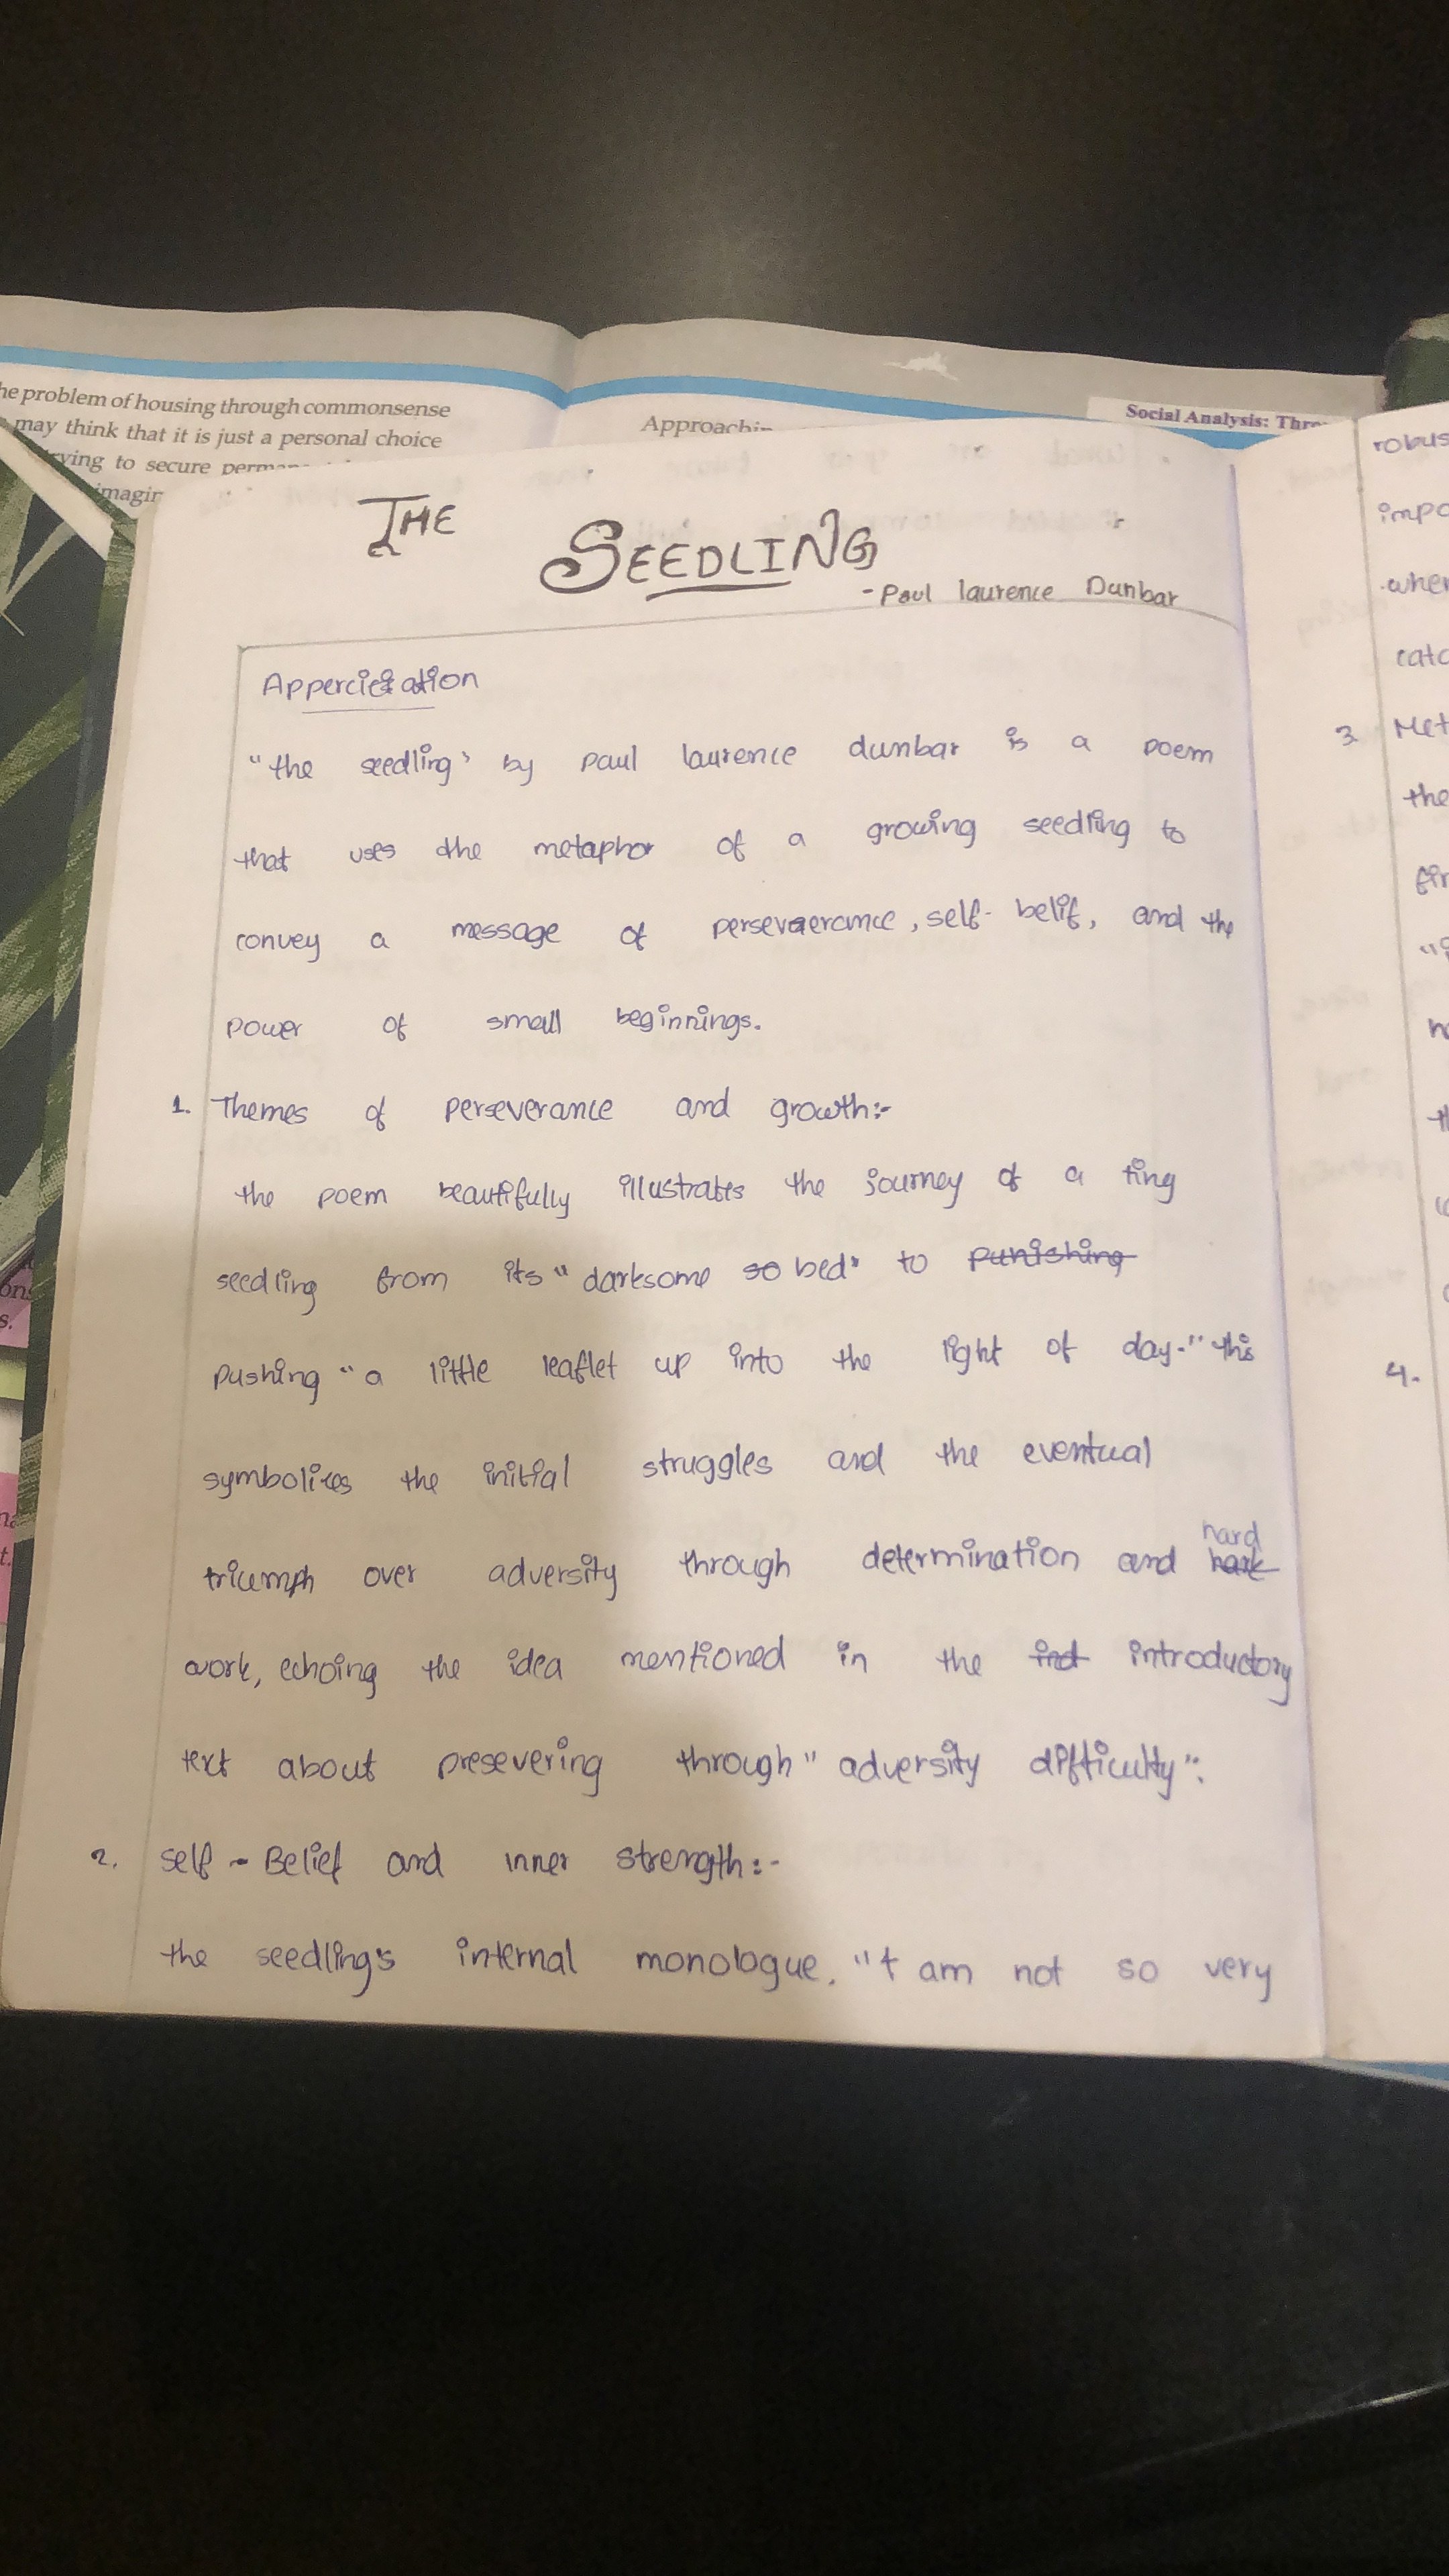 he problem of housing through commonsense
may think that it is just a personal choice
ying to secure
imagin
Approachin
Social Analysis: Thro
THE
SEEDLING
- Paul laurence Dunbar
Apperciciation
"the seedling" by paul laurence dunbar is a poem
that uses the metaphor of a growing seedling to
convey a message of persevaerance, self- belif, and the
power of small beginnings.
1. Themes of perseverance and growth:-
the poem beautifully illustrates the journey of a ting
seedling from its "darksome so bed" to punishing
pushing "a little leaflet up into the light of day." this
symbolizes the initial struggles and the eventual
hard
triumph over adversity through determination and hark
work, echoing the idea mentioned in the ind introductory
text about presevering through "adversity difficulty".
2. self - Belief and inner strength:-
the seedling's internal monologue, "I am not so very
robus
impo
wher
catc
3. Met
the
fir
4.